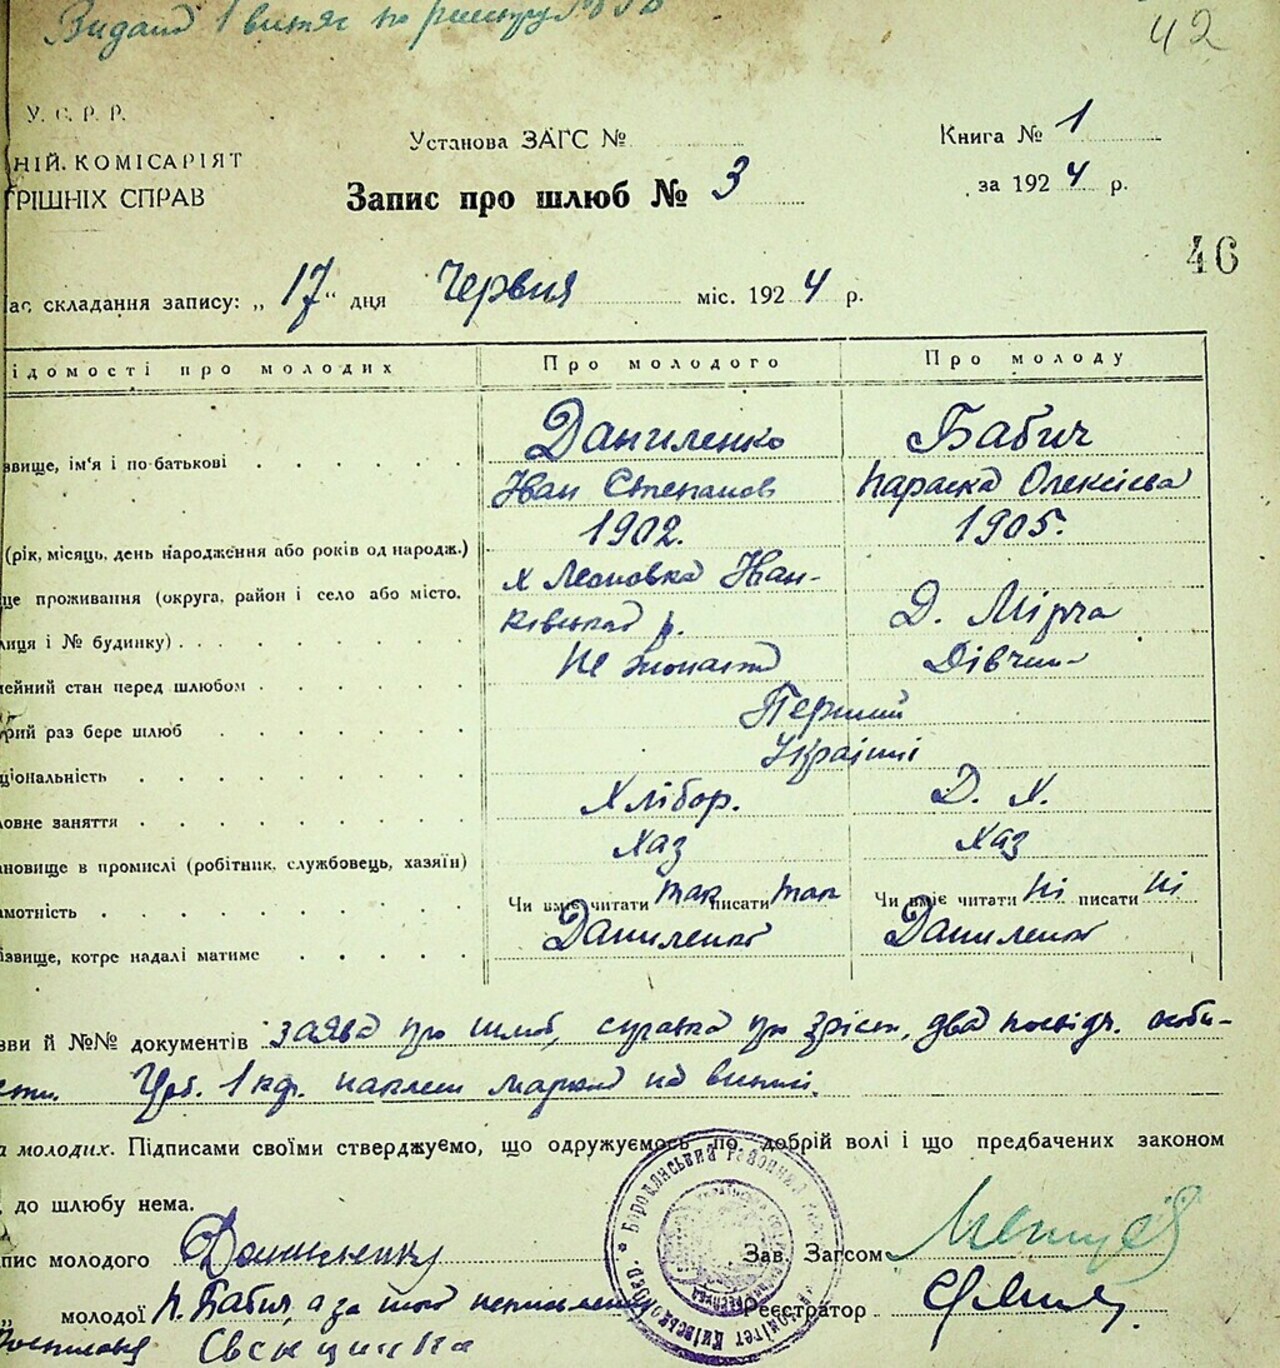 Видано 1 витяг по реєстру №
42
У. С. Р. Р.
НІЙ. КОМІСАРІЯТ
РІШНІХ СПРАВ
Установа ЗАГС №
Запис про шлюб № 3
Книга № 1
за 1924 р.
46
ас складання запису: „17“ дня Червня міс. 1924 р.
ідомості про молодих Про молодого Про молоду
звище, ім'я і по-батькові Даниленко Бабич
Іван Степанов Параска Олексієва
(рік, місяць, день народження або років од народж.) 1902. 1905.
це проживання (округа, район і село або місто, х Леоновка Іван-
лиця і № будинку) ківської р. Д. Мірча
ейний стан перед шлюбом Не жонат Дівчин
рий раз бере шлюб Перший
ціональність Українці
овне заняття Хлібор. Д. Х.
ановище в промислі (робітник, службовець, хазяїн) Хаз Хаз
амотність Чи вміє читати так писати так Чи вміє читати Ні писати Ні
ізвище, котре надалі матиме Даниленко Даниленко
зви й №№ документів заява про шлюб, справка про зріст, два посвідч. особи-
сти. 1 кр. наклеєн маркой на витязі.
а молодих. Підписами своїми стверджуємо, що одружуємось по добрій волі і що предбачених законом
до шлюбу нема.
пис молодого Даниленко
Зав. Загсом
„ молодої П. Бабич, а за неї неписьменну
Реєстратор
Бородянський Районний
Київської